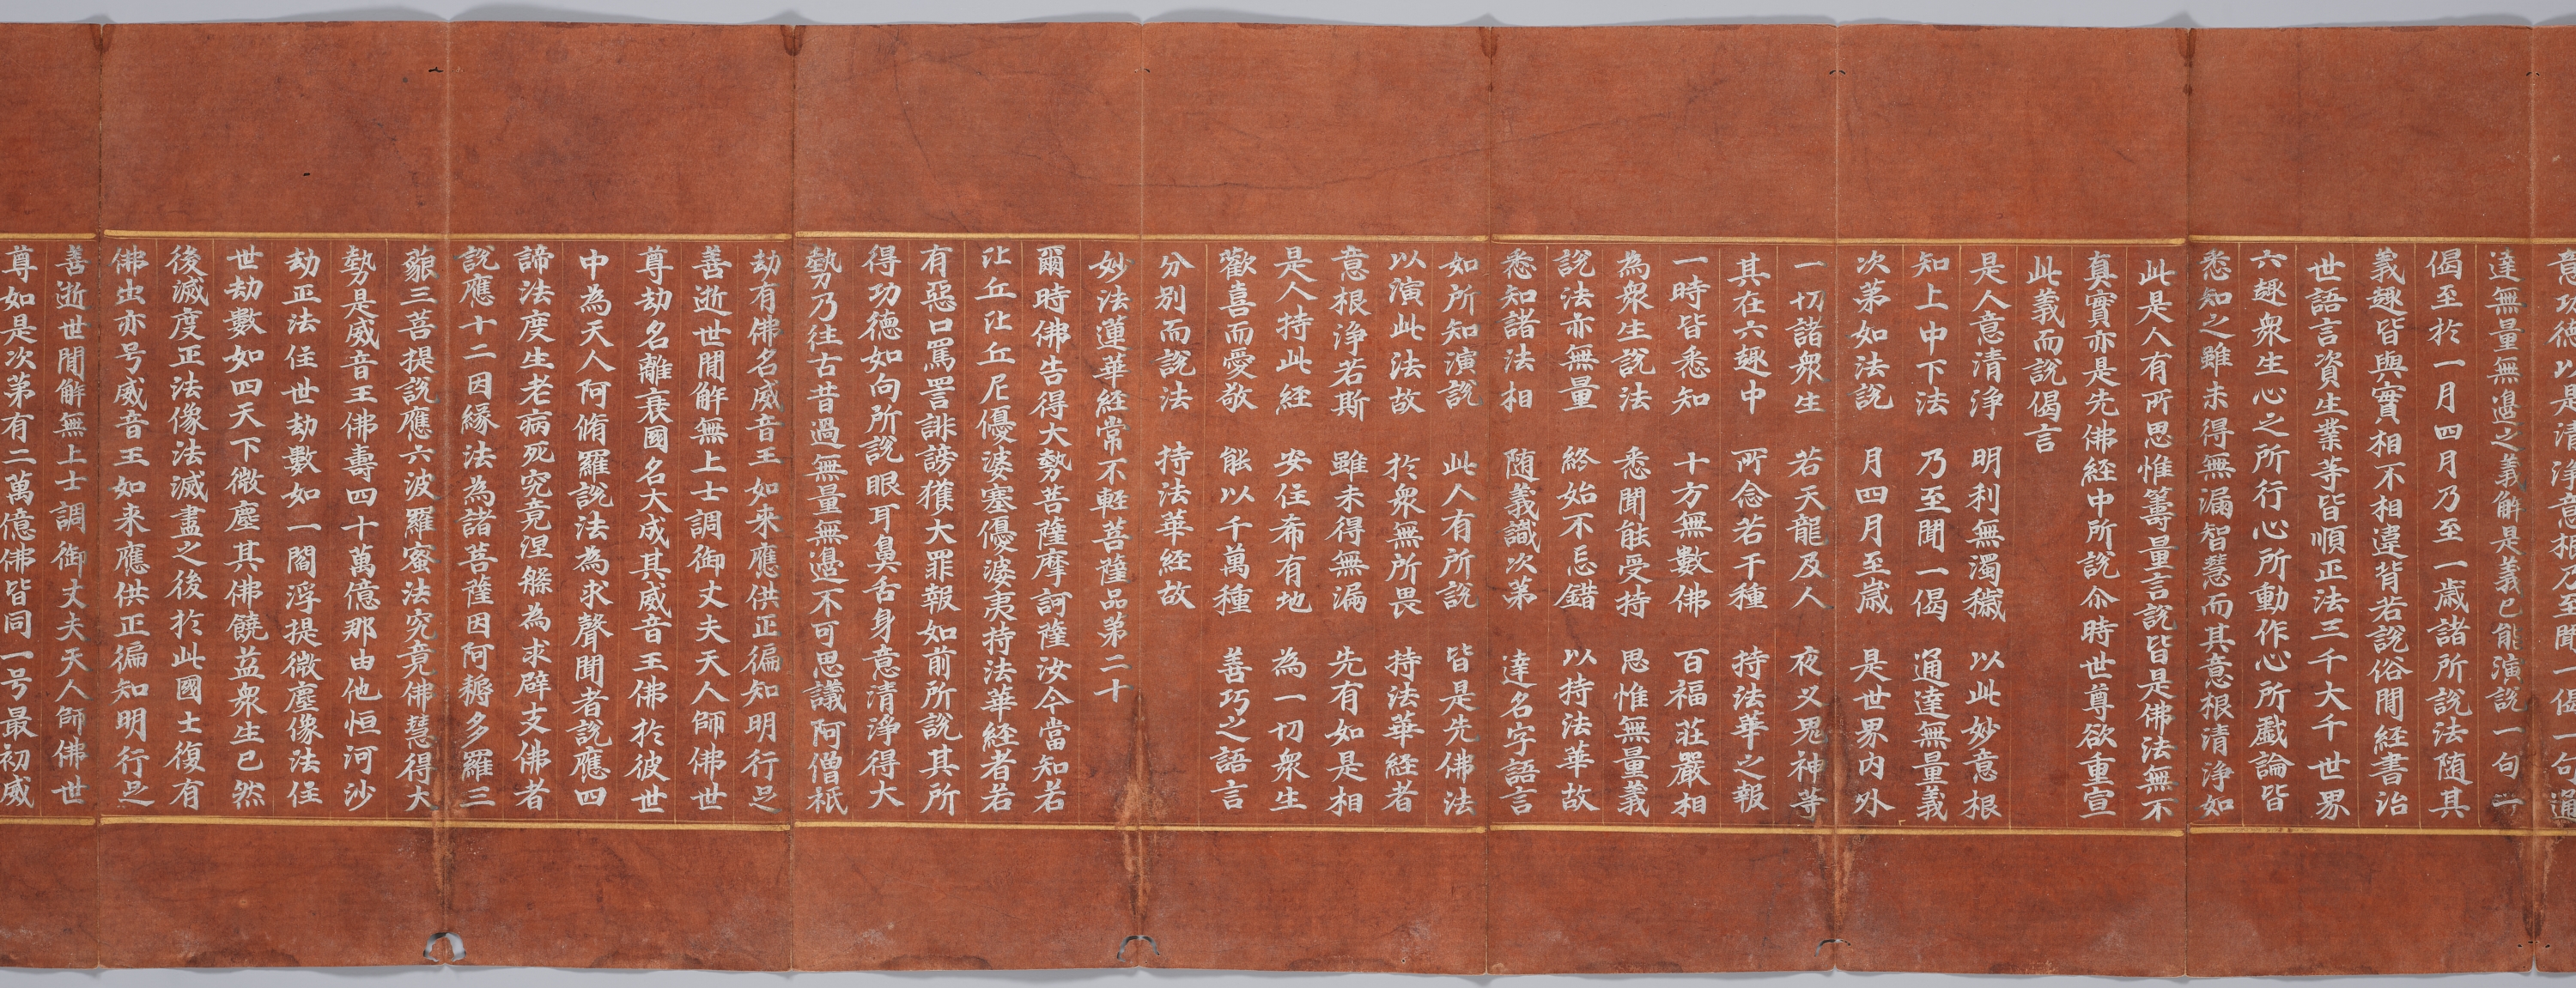 意功德以是清淨意根乃至聞一偈一句通
達無量無邊之義解是義已能演說一句一
偈至於一月四月乃至一歲諸所說法随其
義趣皆與實相不相違背若說俗間經書治
世語言資生業等皆順正法三千大千世界
六趣衆生心之所行心所動作心所戲論皆
悉知之雖未得無漏智慧而其意根清淨如
此是人有所思惟籌量言說皆是佛法無不
真實亦是先佛經中所說尒時世尊欲重宣
此義而說偈言
是人意清淨　明利無濁穢　以此妙意根
知上中下法　乃至聞一偈　通達無量義
次第如法說　月四月至歲　是世界內外
一切諸衆生　若天龍及人　夜叉鬼神等
其在六趣中　所念若干種　持法華之報
一時皆悉知　十方無數佛　百福莊嚴相
為衆生說法　悉聞能受持　思惟無量義
說法亦無量　終始不忘錯　以持法華故
悉知諸法相　随義識次第　達名字語言
如所知演說　此人有所說　皆是先佛法
以演此法故　於衆無所畏　持法華經者
意根淨若斯　雖未得無漏　先有如是相
是人持此經　安住希有地　為一切衆生
歡喜而愛敬　能以千萬種　善巧之語言
分別而說法　持法華經故
妙法蓮華經常不輕菩薩品第二十
爾時佛告得大勢菩薩摩訶薩汝今當知若
比丘比丘尼優婆塞優婆夷持法華經者若
有惡口罵詈誹謗獲大罪報如前所說其所
得功德如向所說眼耳鼻舌身意清淨得大
勢乃往古昔過無量無邊不可思議阿僧祇
劫有佛名威音王如来應供正徧知明行足
善逝世間解無上士調御丈夫天人師佛世
尊劫名離衰國名大成其威音王佛於彼世
中為天人阿脩羅說法為求聲聞者說應四
諦法度生老病死究竟涅槃為求辟支佛者
說應十二因緣法為諸菩薩因阿耨多羅三
藐三菩提說應六波羅蜜法究竟佛慧得大
勢是威音王佛壽四十萬億那由他恒河沙
劫正法住世劫數如一閻浮提微塵像法住
世劫數如四天下微塵其佛饒益衆生已然
後滅度正法像法滅盡之後於此國土復有
佛出亦号威音王如来應供正徧知明行足
善逝世間解無上士調御丈夫天人師佛世
尊如是次第有二萬億佛皆同一号最初威